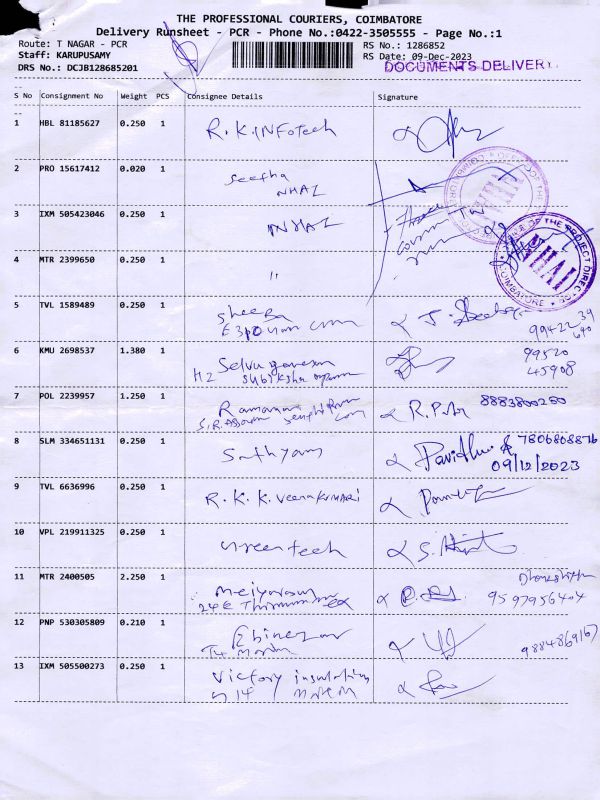 THE PROFESSIONAL COURIERS, COIMBATORE
Delivery Runsheet - PCR - Phone No.:0422-3505555 - Page No.:1
Route: T NAGAR - PCR
Staff: KARUPUSAMY
DRS No.: DCJB128685201
RS No.: 1286852
RS Date: 09-Dec-2023
DOCUMENTS DELIVERY
S No Consignment No Weight PCS Consignee Details Signature
1 HBL 81185627 0.250 1 R.K.INFotech
2 PRO 15617412 0.020 1 Seetha
NHAI
3 IXM 505423046 0.250 1 NHAI
4 MTR 2399650 0.250 1 "
5 TVL 1589489 0.250 1 Sheeba
994223
6 KMU 2698537 1.380 1 Selvaganesan
H2 Subiksha
99520
45908
7 POL 2239957 1.250 1 Ramaswami
8883800250
8 SLM 334651131 0.250 1 Sathyam
7806808876
09/12/2023
9 TVL 6636996 0.250 1 R.K.K.Veerakumari
10 VPL 219911325 0.250 1 Greentech
11 MTR 2400505 2.250 1
24E
9597956404
12 PNP 530305809 0.210 1 Ebinezar
9884869167
13 IXM 505500273 0.250 1 Victory insulation
COIMBATORE
OF THE PROJECT DIREC